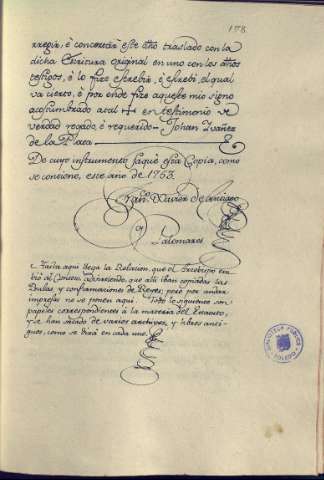 178
rregir, è concertar este dho traslado con la
dicha Escritura original en uno con los dhos
testigos, è lo fize escrebir, è escrebi, el qual
va cierto, è por onde fize aqueste mio signo
acostumbrado atal + en testimonio de
verdad rogado, è requerido = Johan Ivañez
de la Plata
De cuyo instrumento saquè esta Copia, como
se contiene, este año de 1763.
Fran.co Xavier de Santiago
y Palomares
Hasta aqui llega la Relacion, que el Arzobispo em
biò al Consejo, advirtiendo, que alli iban copiadas las
Bulas y confirmaciones de Reyes, pero por andar
impresas no se ponen aqui. Todo lo siguiente son
papeles correspondientes à la materia del Estatuto,
y se han sacado de varios archivos, y libros anti-
guos, como se dirà en cada uno.
BIBLIOTECA PUBLICA
TOLEDO